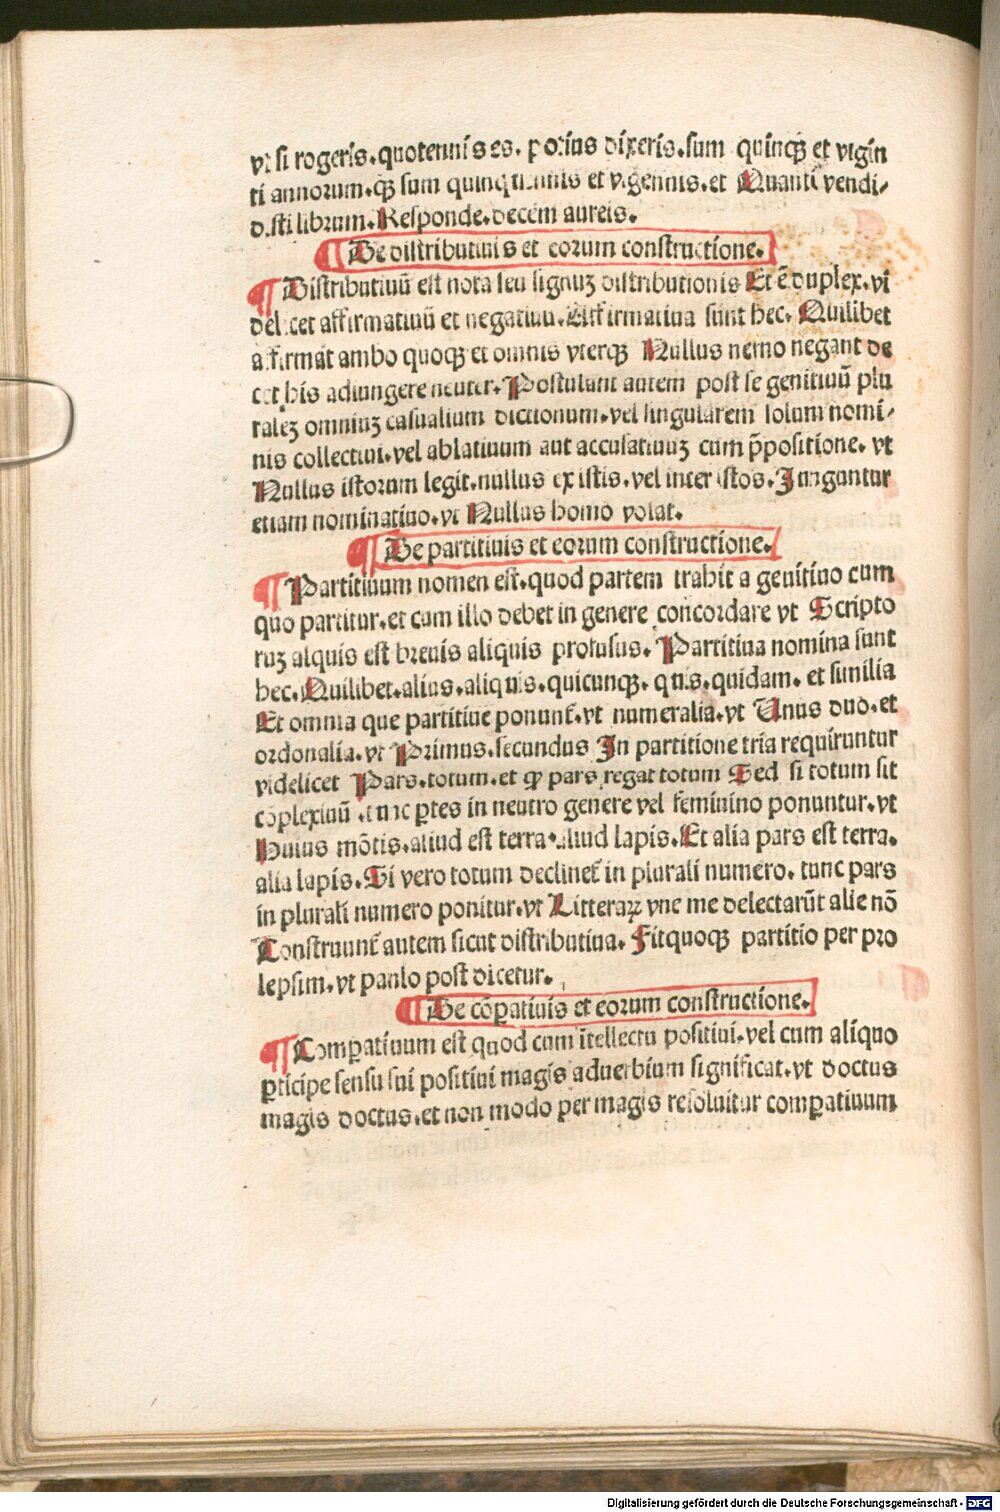 vt si rogeris. quotennis es. potius dixeris. sum quinqꝫ et vigin
ti annorum. qꝫ sum quinquennis et vigennis. et Quanti vendi-
disti librum. Responde. decem aureis.
¶ De distributiuis et eorum constructione.
¶ Distributiuū est nota seu signuꝫ distributionis Et ē duplex. vi
delicet affirmatiuū et negatiuū. Affirmatiua sunt hec. Quilibet
affirmāt ambo quoqꝫ et omnis vterqꝫ Nullus nemo negant de
cet his adiungere neuter. Postulant autem post se genitiuū plu
raleꝫ omniuꝫ casualium dictionum. vel singularem solum nomi-
nis collectiui. vel ablatiuum aut accusatiuuꝫ cum p̄positione. vt
Nullus istorum legit. nullus ex istis. vel inter istos. Iunguntur
etiam nominatiuo. vt Nullus homo volat.
¶ De partitiuis et eorum constructione.
¶ Partitiuum nomen est. quod partem trahit a genitiuo cum
quo partitur. et cum illo debet in genere concordare vt Scripto
ruꝫ alquis est breuis aliquis profusus. Partitiua nomina sunt
hec. Quilibet. alius. aliquis. quicunqꝫ. quis. quidam. et similia
Et omnia que partitiue ponunt̄. vt numeralia. vt Unus duo. et
ordonalia. vt Primus. secundus In partitione tria requiruntur
videlicet Pars. totum. et ꝙ pars regat totum Sed si totum sit
cōplexiuū tunc ꝑtes in neutro genere vel feminino ponuntur. vt
Huius mōtis. aliud est terra. aliud lapis. Et alia pars est terra.
alia lapis. Si vero totum declinet̄ in plurali numero. tunc pars
in plurali numero ponitur. vt Litteraꝝ vne me delectarūt alie nō
Construunt̄ autem sicut distributiua. Fitquoqꝫ partitio per pro
lepsim. vt paulo post dicetur.
¶ De cōꝑatiuis et eorum constructione.
¶ Comꝑatiuum est quod cum ītellectu positiui. vel cum aliquo
ꝑticipe sensu sui positiui magis aduerbium significat. vt doctus
magis doctus. et non modo per magis resoluitur comꝑatiuum
Digitalisierung gefördert durch die Deutsche Forschungsgemeinschaft - DFG